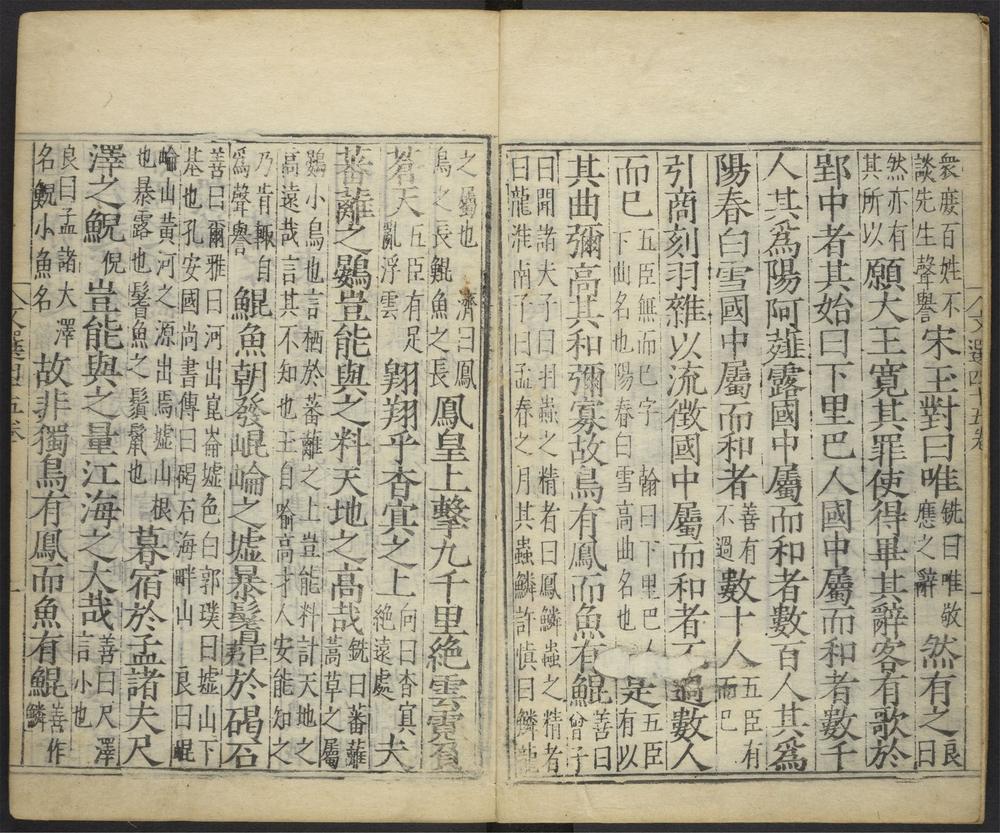 衆庶百姓不談先生聲譽宋玉對曰唯銑曰唯敬應之辭然有之良曰
然亦有其所以願大王寬其罪使得畢其辭客有歌於
郢中者其始曰下里巴人國中屬而和者數千
人其爲陽阿薤露國中屬而和者數百人其爲
陽春白雪國中屬而和者善有不過數十人五臣有而已
引商刻羽雜以流徵國中屬而和者過數人
而已五臣無而已字翰曰下里巴人下曲名也陽春白雪高曲名也是五臣有以
其曲彌高其和彌寡故鳥有鳳而魚有鯤善曰曾子
曰聞諸夫子曰羽蟲之精者曰鳳鱗蟲之精者
曰龍淮南子曰孟春之月其蟲鱗許愼曰鱗龍
文選四十五卷
之屬也濟曰鳳鳥之長鯤魚之長鳳皇上擊九千里絕雲霓負
蒼天五臣有足亂浮雲翱翔乎杳冥之上向曰杳冥絕遠處夫
蕃蘺之鷃豈能與之料天地之高哉銑曰蕃蘺蒿草之屬
鷃小鳥也言栖於蕃蘺之上豈能料計天地之
高遠哉言其不知也王自喻高才人安能知之
乃肯輙自爲聲譽鯤魚朝發崐崘之墟暴鬐夷於碣石
善曰爾雅曰河出崑崙墟色白郭璞曰墟山下
基也孔安國尚書傳曰碣石海畔山良曰崐
崘山黃河之源出焉墟山根也暴露也鬐魚之鬚鬣也暮宿於孟諸夫尺
澤之鯢倪豈能與之量江海之大哉善曰尺澤言小也
良曰孟諸大澤名鯢小魚名故非獨鳥有鳳而魚有鯤善作鱗
文選四十五卷